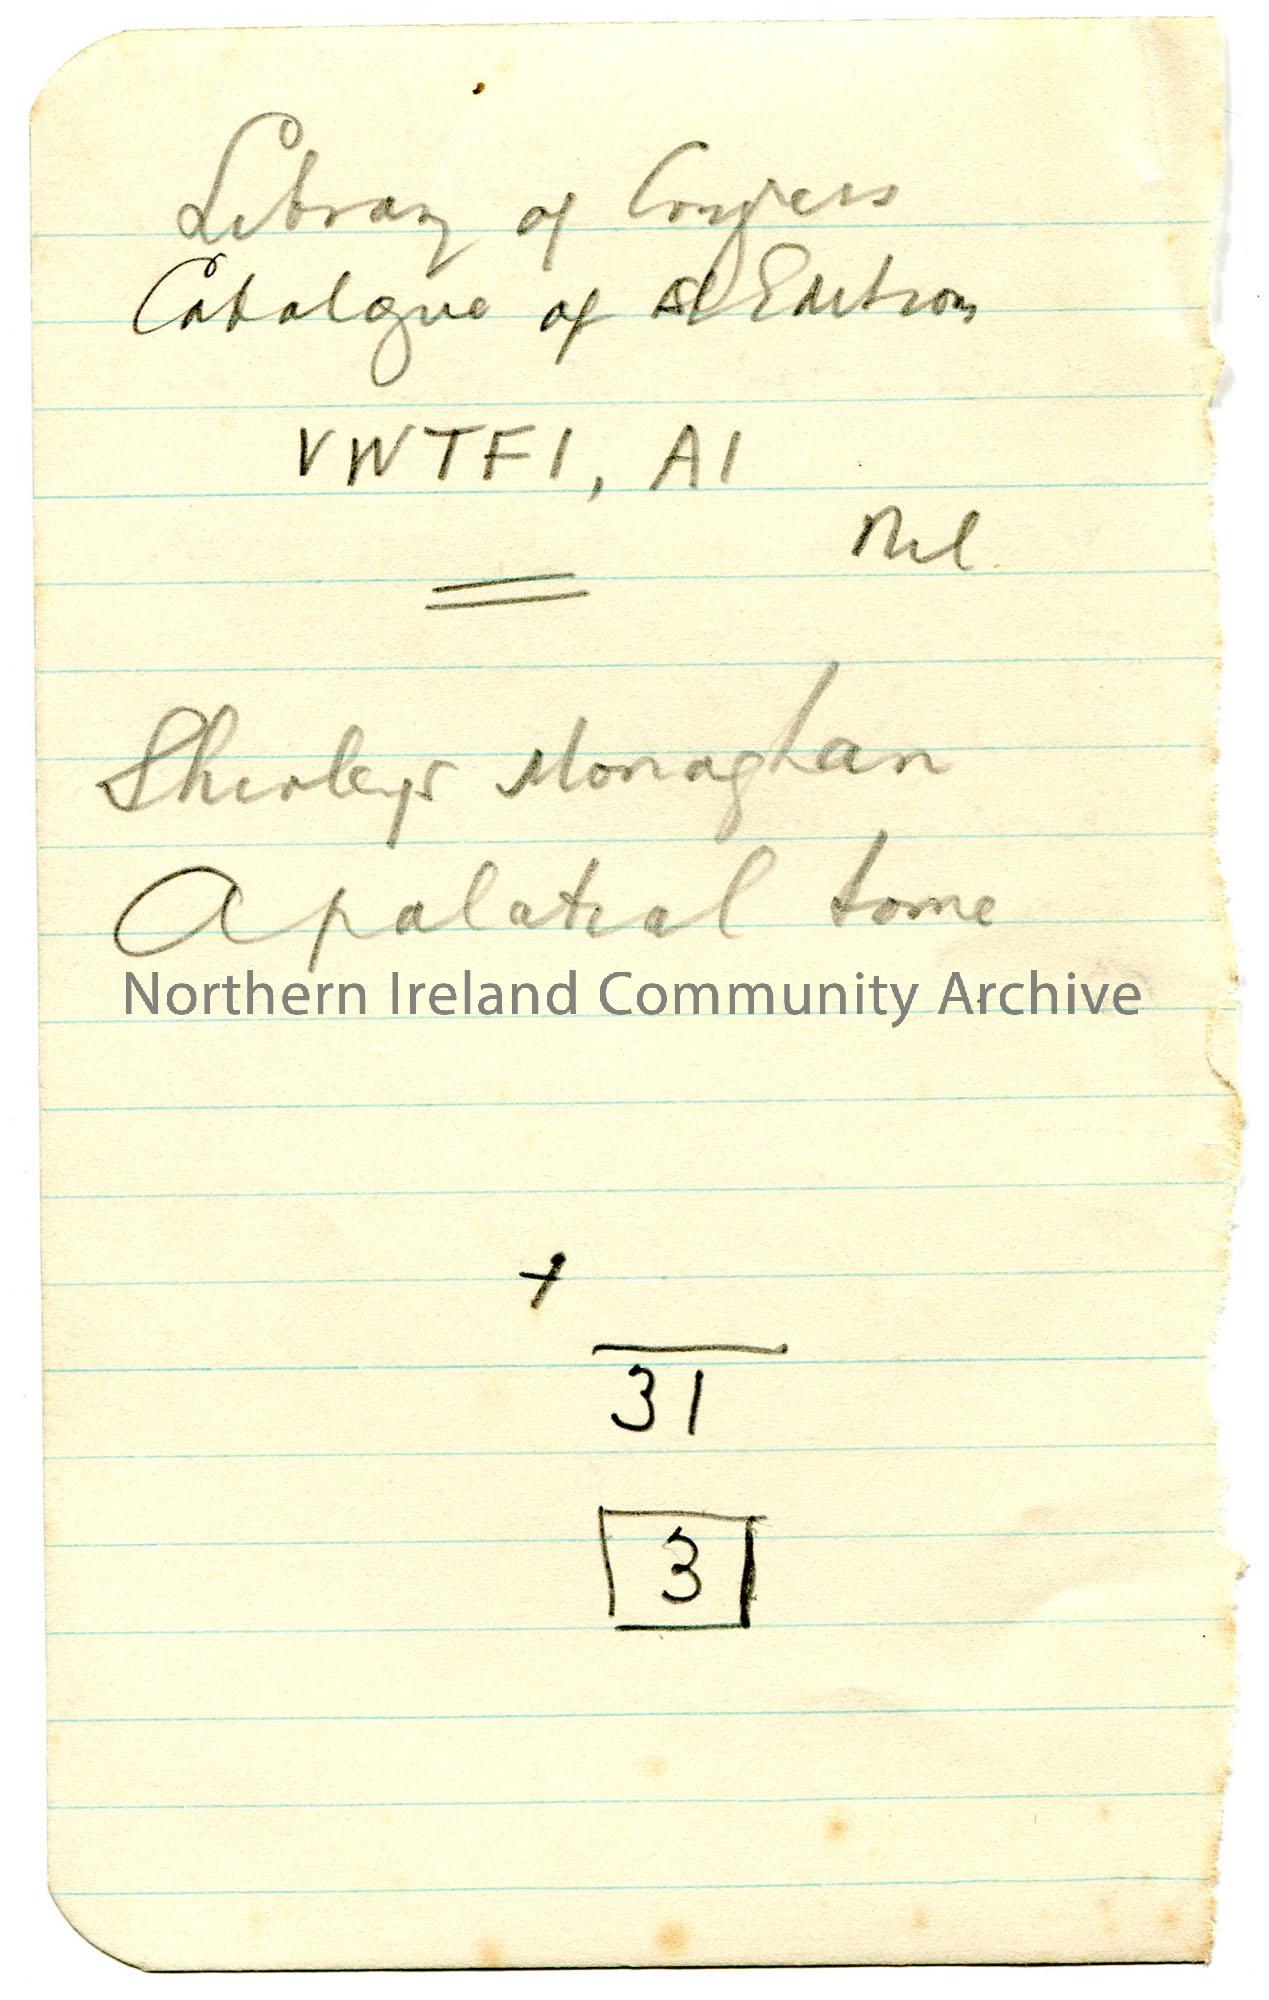 Library of Congress
Catalogue of 1st Editions
VWTF1, A1
Nil
Shirleys Monaghan
A palatial tome
Northern Ireland Community Archive
+
31
3